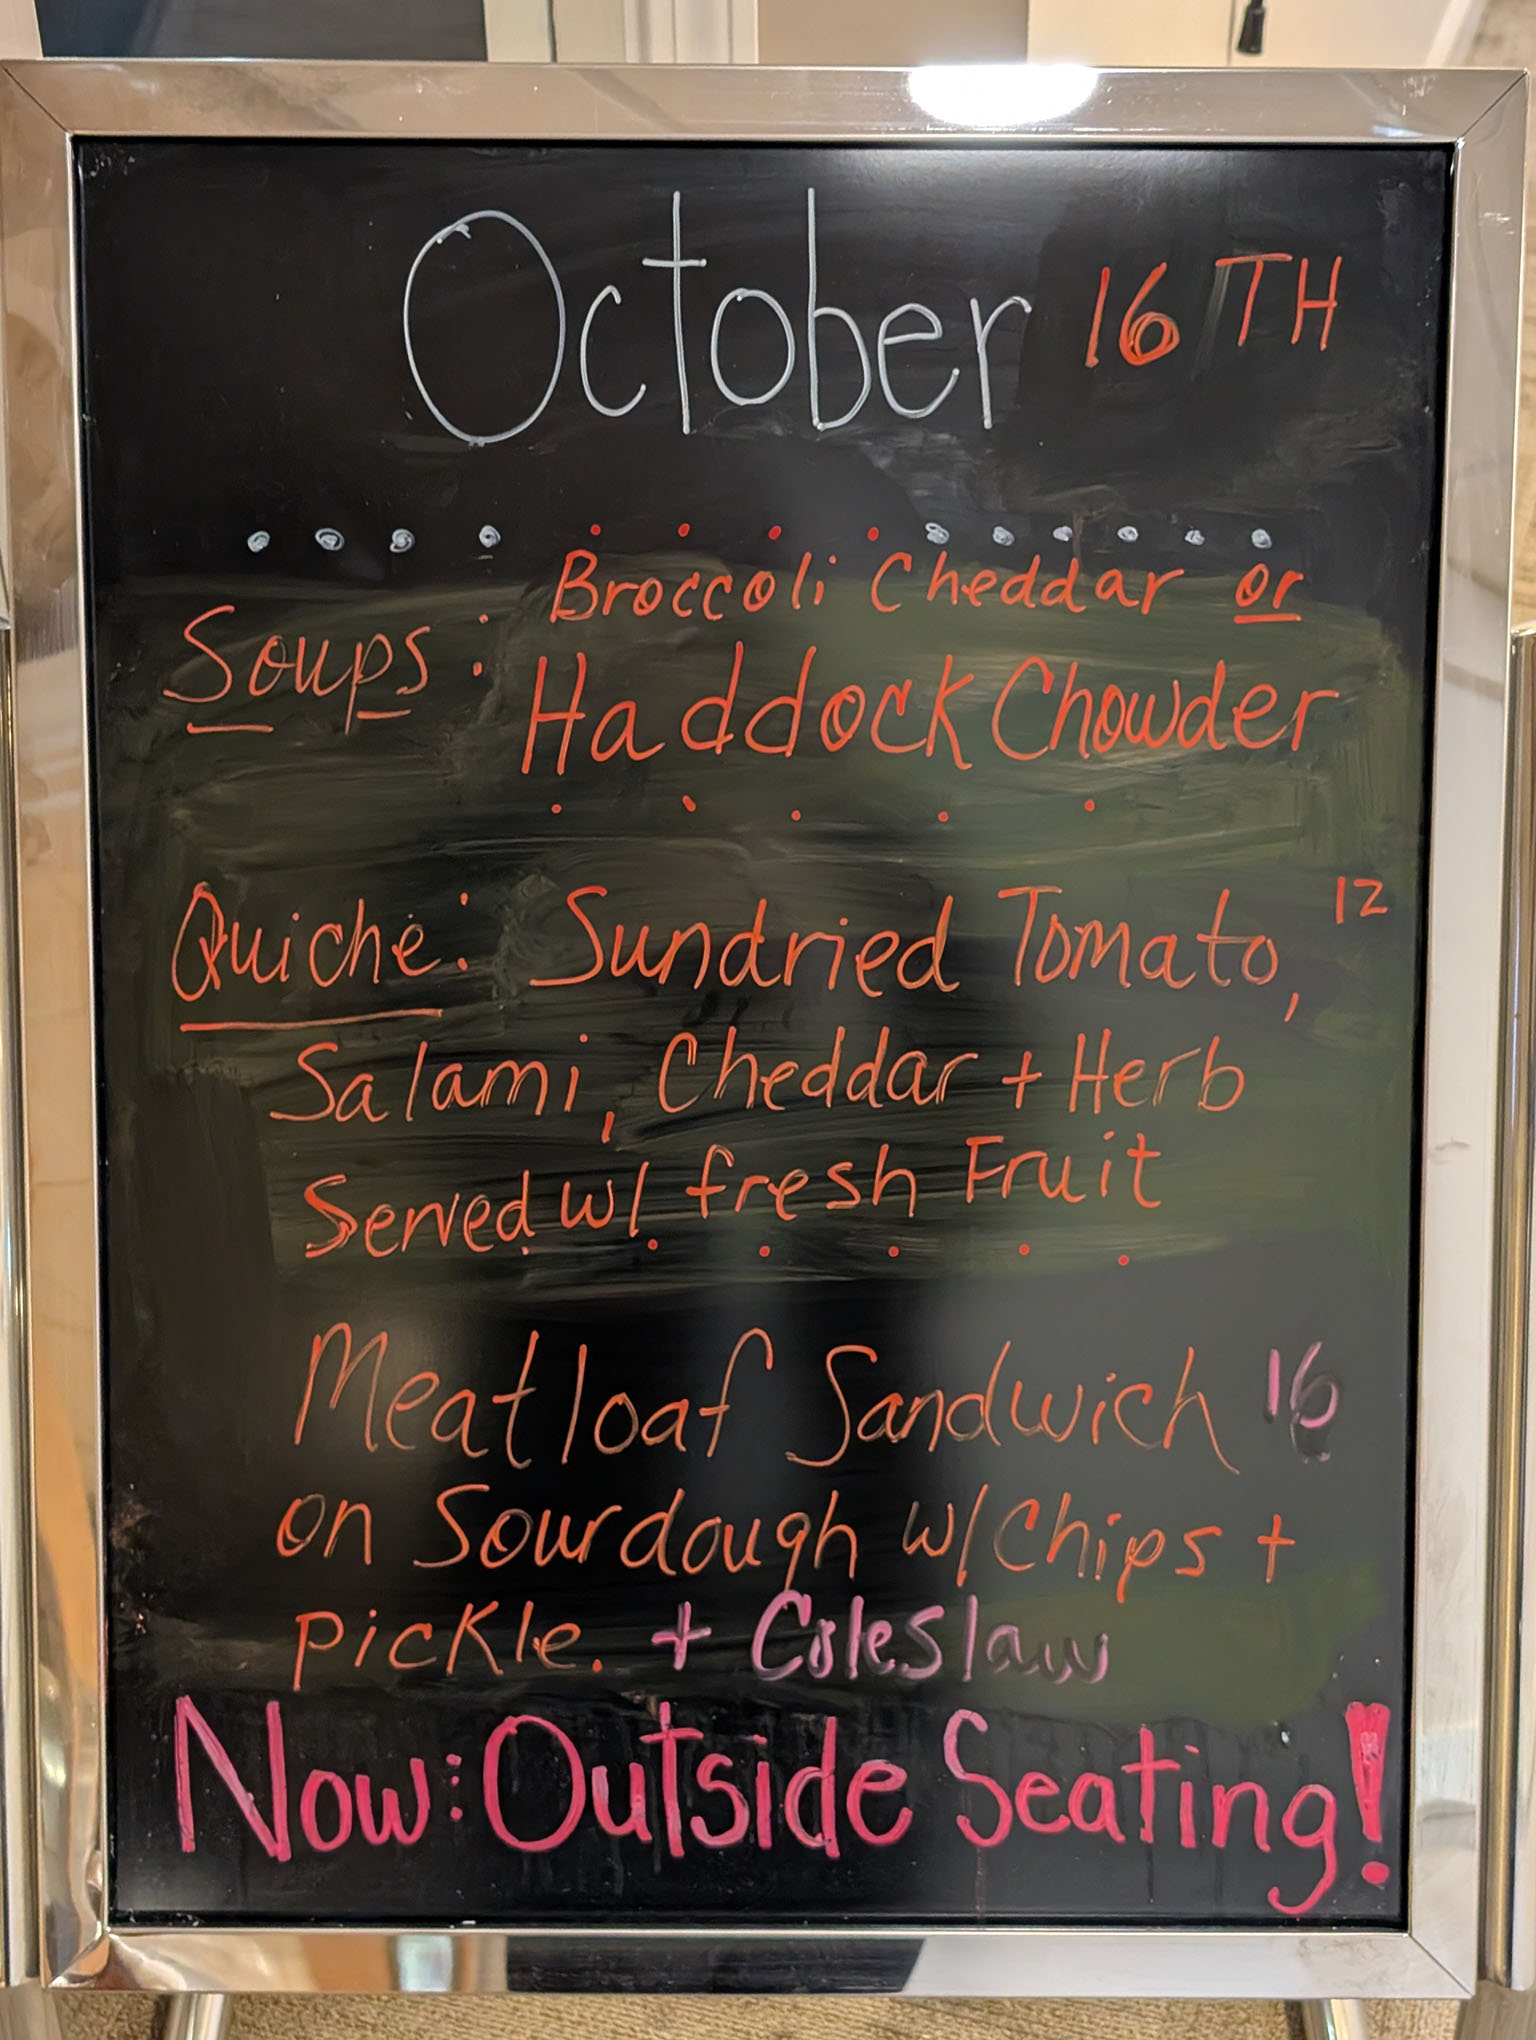 October 16TH
Broccoli Cheddar or
Soups: Haddock Chowder
Quiche: Sundried Tomato, 12
Salami, Cheddar + Herb
Served w/ fresh Fruit
Meatloaf Sandwich 16
on Sourdough w/ Chips +
pickle. + Coleslaw
Now: Outside Seating!